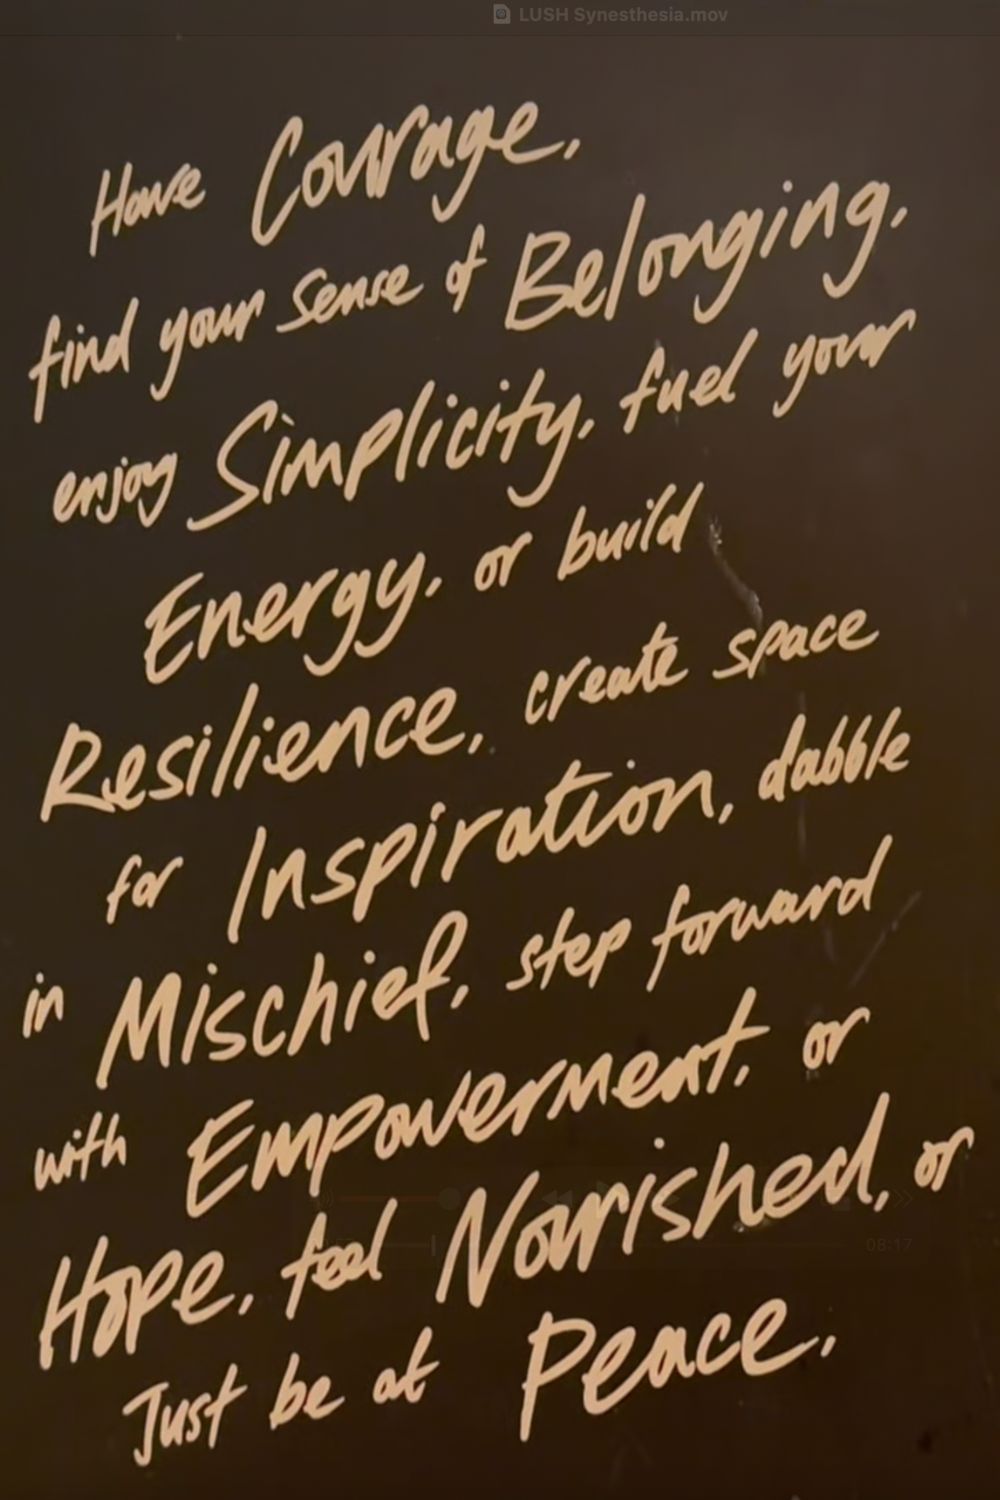 LUSH Synesthesia.mov
Have Courage,
find your sense of Belonging,
enjoy Simplicity, fuel your
Energy, or build
Resilience, create space
for Inspiration, dabble
in Mischief, step forward
with Empowerment, or
Hope, feel Nourished, or
Just be at Peace.
08:17